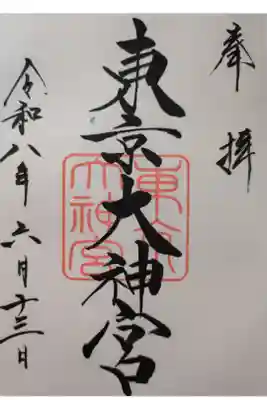 奉拝
東京大神宮
東京
大神宮
令和八年六月十三日